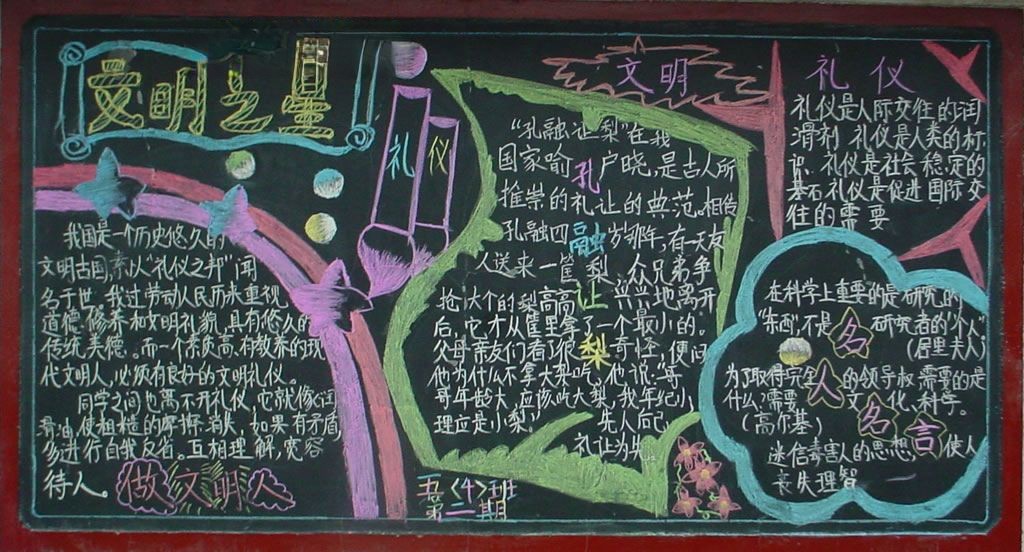 文明之星
礼仪
我国是一个历史悠久的
文明古国,素以"礼仪之邦"闻
名于世。我过劳动人民历来重视
道德修养和文明礼貌,具有悠久的
传统美德。而一个素质高,有教养的现
代文明人,必须有良好的文明礼仪。
同学之间也离不开礼仪,它就像润
滑油,使粗糙的摩擦消失,如果有矛盾
多进行自我反省。互相理解,宽容
待人。
做文明人
文明
"孔融让梨"在我
国家喻户晓,是古人所
推崇的礼让的典范。相传
孔融四岁那年,有一天友
人送来一筐梨,众兄弟争
抢大个的梨高高兴兴地离开
后,它才从筐里拿了一个最小的。
父母亲友们看了很奇怪,便问
他为什么不拿大梨吃,他说,哥
哥年龄大,应该吃大梨,我年纪小
理应是小梨。先人后己,
礼让为先
孔融让梨
五〈4〉班
第二期
礼仪
礼仪是人际交往的润
滑剂 礼仪是人类的标
识、礼仪是社会稳定的
基石,礼仪是促进国际交
往的需要
在科学上重要的是研究的
"东西",不是研究者的"个人"
(居里夫人)
为了取得完全的领导权,需要的是
什么?需要文化、科学。
(高尔基)
迷信毒害人的思想,使人
丧失理智
名人名言